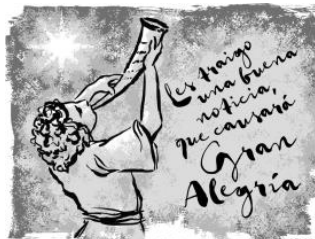 Les traigo
una buena
noticia,
que causará
Gran
Alegría